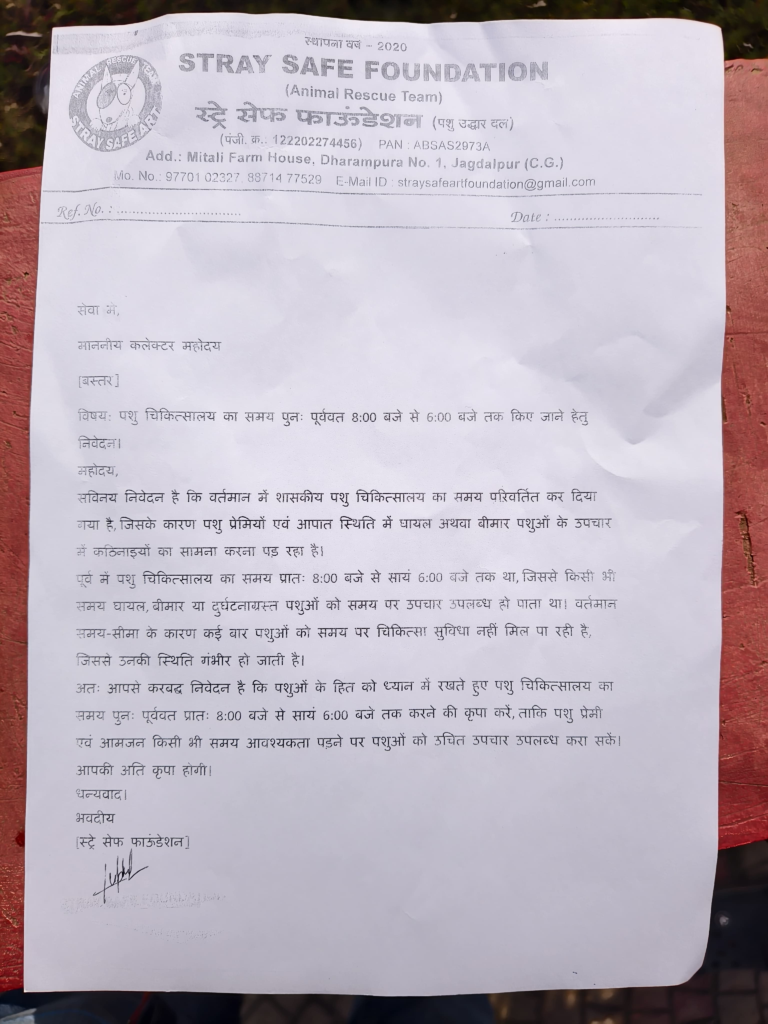 स्थापना वर्ष - 2020
STRAY SAFE FOUNDATION
(Animal Rescue Team)
स्ट्रे सेफ फाऊंडेशन (पशु उद्धार दल)
(पंजी. क्र.: 122202274456) PAN : ABSAS2973A
Add.: Mitali Farm House, Dharampura No. 1, Jagdalpur (C.G.)
Mo. No.: 97701 02327, 88714 77529 E-Mail ID : straysafeartfoundation@gmail.com
ANIMAL RESCUE TEAM
STRAY SAFE ART
Ref. No. : ................................
Date : ...........................
सेवा में,
माननीय कलेक्टर महोदय
[बस्तर]
विषय: पशु चिकित्सालय का समय पुनः पूर्ववत 8:00 बजे से 6:00 बजे तक किए जाने हेतु
निवेदन।
महोदय,
सविनय निवेदन है कि वर्तमान में शासकीय पशु चिकित्सालय का समय परिवर्तित कर दिया
गया है, जिसके कारण पशु प्रेमियों एवं आपात स्थिति में घायल अथवा बीमार पशुओं के उपचार
में कठिनाइयों का सामना करना पड़ रहा है।
पूर्व में पशु चिकित्सालय का समय प्रातः 8:00 बजे से सायं 6:00 बजे तक था, जिससे किसी भी
समय घायल, बीमार या दुर्घटनाग्रस्त पशुओं को समय पर उपचार उपलब्ध हो पाता था। वर्तमान
समय-सीमा के कारण कई बार पशुओं को समय पर चिकित्सा सुविधा नहीं मिल पा रही है,
जिससे उनकी स्थिति गंभीर हो जाती है।
अतः आपसे करबद्ध निवेदन है कि पशुओं के हित को ध्यान में रखते हुए पशु चिकित्सालय का
समय पुनः पूर्ववत प्रातः 8:00 बजे से सायं 6:00 बजे तक करने की कृपा करें, ताकि पशु प्रेमी
एवं आमजन किसी भी समय आवश्यकता पड़ने पर पशुओं को उचित उपचार उपलब्ध करा सकें।
आपकी अति कृपा होगी।
धन्यवाद।
भवदीय
[स्ट्रे सेफ फाऊंडेशन]